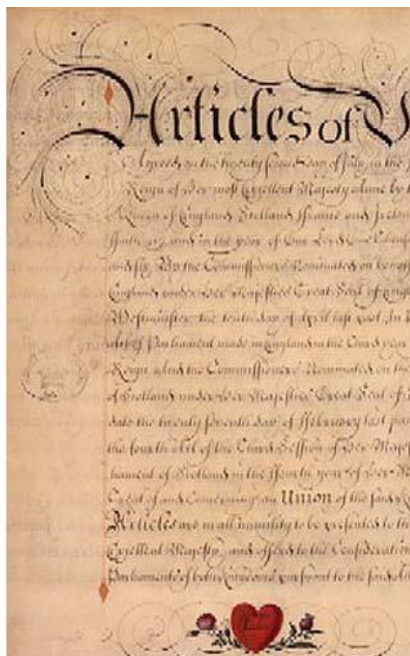 Articles of U
Agreed on the twenty second day of July in the
Reign of Her most Excellent Majesty Anne by t
Queen of England Scotland France and Irela
and in the year of Our Lord One Thous
and six By the Commissioners Nominated on beha
England under Her Majesties Great Seal of Engl
Westminster the tenth day of April last past In
of Parliament made in England in the third year
Reign And the Commissioners Nominated on the
of Scotland under Her Majesties Great Seal of S
date the twenty seventh day of February last pas
the fourth Act of the third Session of Her Majes
liament of Scotland in the fourth year of Her M
Treat of and Concerning an Union of the said K
Articles are in all humility to be presented to th
Excellent Majesty and offered to the Consideration
Parliaments of both Kingdoms pursuant to the said